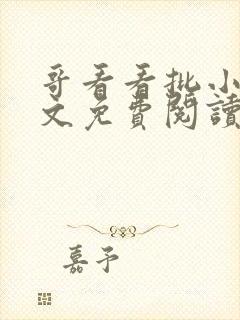 哥看看批小
文免費閱讀
嘉予